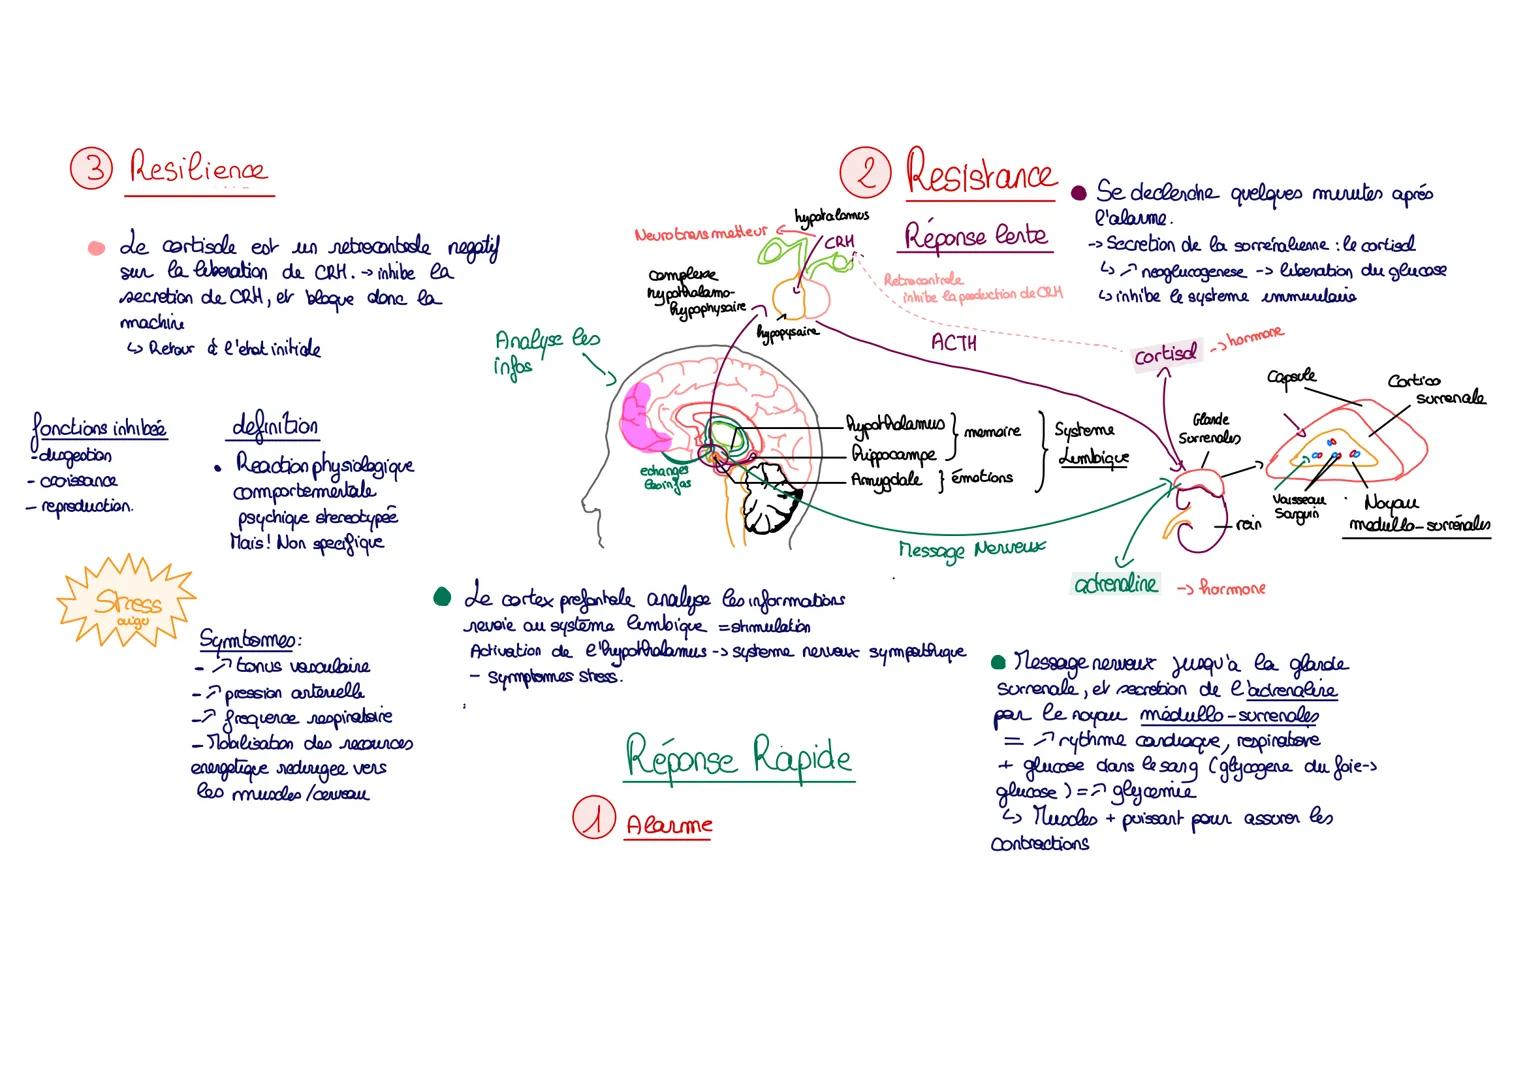 3 Resilience
Le cortisole est un retrocontrole negatif
sur la liberation de CRH. -> inhibe la
secretion de CRH, et bloque donc la
machine
↳ Retour à l'etat initiale
fonctions inhibée
- digestion
- croissance
- reproduction.
definition
• Reaction physiologique
comportementale
psychique stereotypée
Mais! Non specifique
Stress
aigu
Symtomes:
- ↗ tonus vasculaire
- ↗ pression arterielle
- ↗ frequence respiratoire
- Mobilisation des recources
energetique redirigee vers
les muscles / cerveau
2 Resistance
Réponse lente
Se declenche quelques minutes aprés
l'alarme.
-> Secretion de la sorreralienne : le cortisol
↳ ↗ neoglucogenese -> liberation du glucose
↳ inhibe le systeme immunitaire
hypothalamus
Neurotransmetteur
CRH
complexe
hypothalamo-
hypophysaire
hypopysaire
Retrocontrole
inhibe la production de CRH
ACTH
cortisol -> hormone
Analyse les
infos
echanges
les infos
Hypothalamus
Hippocampe
Amygdale
memoire
émotions
Systeme
Limbique
Glande
Surrenales
rein
Capsule
Cortico
surrenale
Vaisseau
Sanguin
Noyau
medullo-surrénales
Message Nerveux
adrenaline -> hormone
Le cortex prefontale analyse les informations
revoie au système limbique = stimulation
Activation de l'hypothalamus -> systeme nerveux sympathique
- symptomes stress.
Réponse Rapide
1 Alarme
Message nerveux jusqu'à la glande
surrenale, et secretion de l'adrenaline
par le noyau médullo-surrenales
= ↗ rythme cardiaque, respiratoire
+ glucose dans le sang (glycogene du foie ->
glucose) = ↗ glycemie
↳ Muscles + puissant pour assurer les
contractions